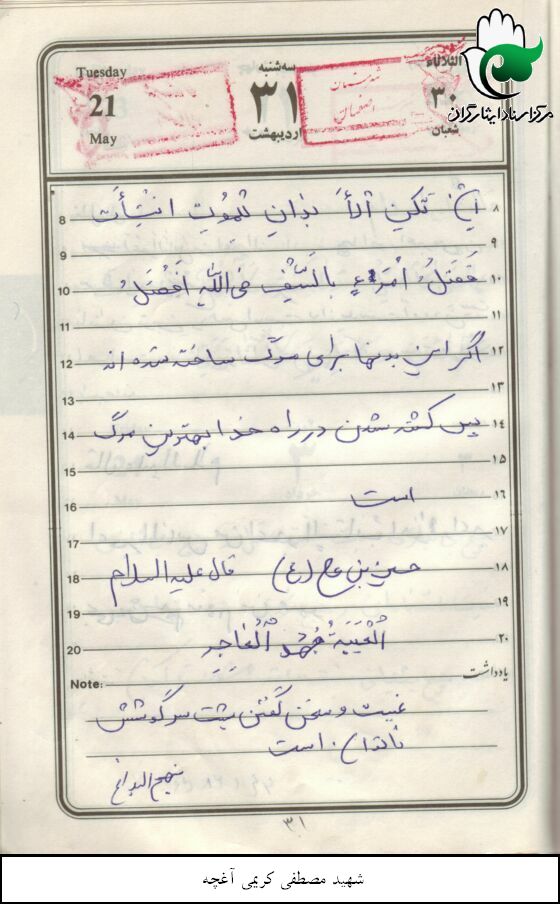 مرکز اسناد ایثارگران
Tuesday
21
May
سه‌شنبه
۳۱
اردیبهشت
الثلاثاء
۳۰
شعبان
اصفهان
8 اِن تَکُنِ الْأَ بْدانِ لِلْمُوتِ انْشَأَت ۸
9 ۹
10 فَقَتلُ اُمرَءٍ بالسَّیْفِ فی اللّهِ اَفْضَلُ ۱۰
11 ۱۱
12 اگر این بدنها برای مرگ ساخته شده اند ۱۲
13 ۱۳
14 پس کشته شدن در راه خدا بهترین مرگ ۱۴
15 ۱۵
16 است ۱۶
17 ۱۷
18 حسین بن علی (ع) قال علیه السلام ۱۸
19 ۱۹
20 اَلْغَیْبَةُ جُهْدُ الْعاجِزِ ۲۰
Note: یادداشت
غیبت و سخن گفتن پشت سر کوشش
ناتوان است
نهج البلاغه
۳۱
شهید مصطفی کریمی آغچه